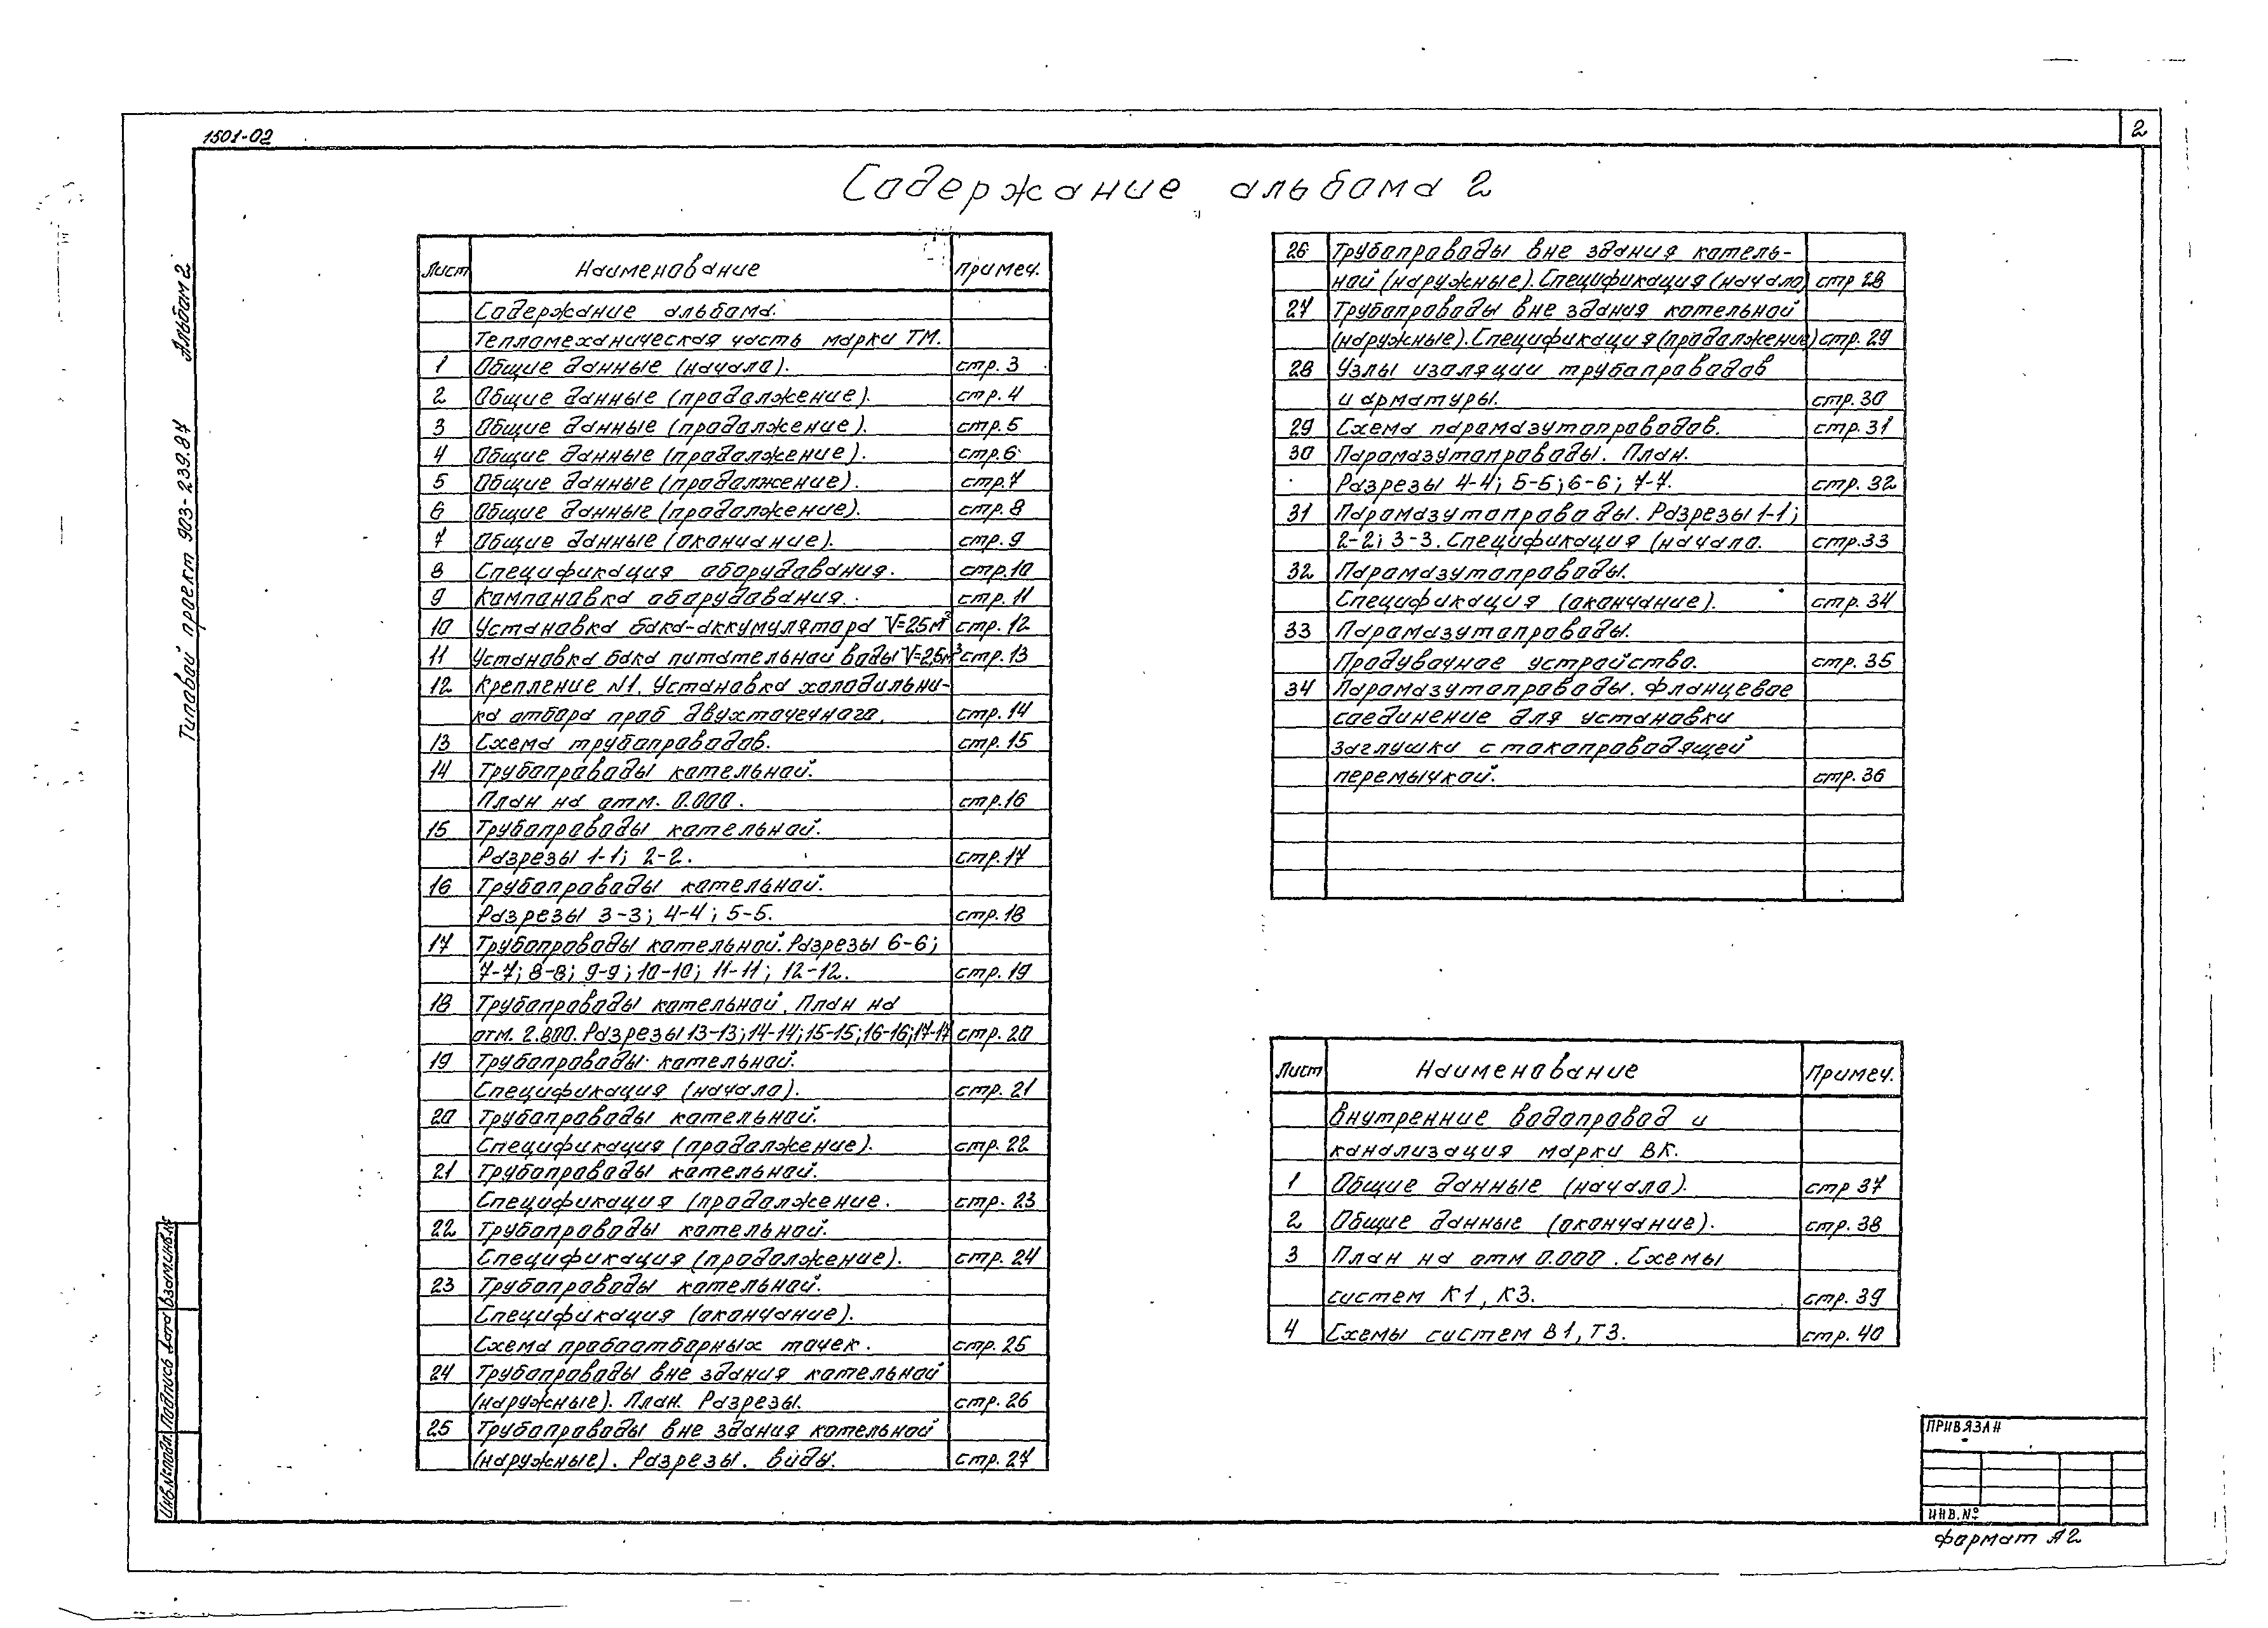 1501-02
2
Содержание альбома 2
Типовой проект 903-239.87 Альбом 2
Лист Наименование Примеч.
Содержание альбома.
Тепломеханическая часть марки ТМ.
1 Общие данные (начало). стр. 3
2 Общие данные (продолжение). стр. 4
3 Общие данные (продолжение). стр. 5
4 Общие данные (продолжение). стр. 6
5 Общие данные (продолжение). стр. 7
6 Общие данные (продолжение). стр. 8
7 Общие данные (окончание). стр. 9
8 Спецификация оборудования. стр. 10
9 Компановка оборудования. стр. 11
10 Установка бака-аккумулятора V=25м³ стр. 12
11 Установка бака питательной воды V=25м³ стр. 13
12 Крепление N1. Установка холодильни-
ка отбора проб двухточечного. стр. 14
13 Схема трубопроводов. стр. 15
14 Трубопроводы котельной.
План на отм. 0.000. стр. 16
15 Трубопроводы котельной.
Разрезы 1-1; 2-2. стр. 17
16 Трубопроводы котельной.
Разрезы 3-3; 4-4; 5-5. стр. 18
17 Трубопроводы котельной. Разрезы 6-6;
7-7; 8-8; 9-9; 10-10; 11-11; 12-12. стр. 19
18 Трубопроводы котельной. План на
отм. 2.800. Разрезы 13-13; 14-14; 15-15; 16-16; 17-17 стр. 20
19 Трубопроводы котельной.
Спецификация (начало). стр. 21
20 Трубопроводы котельной.
Спецификация (продолжение). стр. 22
21 Трубопроводы котельной.
Спецификация (продолжение. стр. 23
22 Трубопроводы котельной.
Спецификация (продолжение). стр. 24
23 Трубопроводы котельной.
Спецификация (окончание).
Схема пробоотборных точек. стр. 25
24 Трубопроводы вне здания котельной
(наружные). План. Разрезы. стр. 26
25 Трубопроводы вне здания котельной
(наружные). Разрезы. Виды. стр. 27
26 Трубопроводы вне здания котель-
ной (наружные). Спецификация (начало) стр 28
27 Трубопроводы вне здания котельной
(наружные). Спецификация (продолжение) стр. 29
28 Узлы изоляции трубопроводов
и арматуры. стр. 30
29 Схема паромазутопроводов. стр. 31
30 Паромазутопроводы. План.
Разрезы 4-4; 5-5; 6-6; 7-7. стр. 32
31 Паромазутопроводы. Разрезы 1-1;
2-2; 3-3. Спецификация (начало. стр. 33
32 Паромазутопроводы.
Спецификация (окончание). стр. 34
33 Паромазутопроводы.
Продувочное устройство. стр. 35
34 Паромазутопроводы. Фланцевое
соединение для установки
заглушки с токопроводящей
перемычкой. стр. 36
Лист Наименование Примеч.
Внутренние водопровод и
канализация марки ВК.
1 Общие данные (начало). стр 37
2 Общие данные (окончание). стр. 38
3 План на отм 0.000. Схемы
систем К1, К3. стр. 39
4 Схемы систем В1, Т3. стр. 40
Инв.№подл. Подпись дата Взам.инв.№
ПРИВЯЗАН
ИНВ.№
Формат А2